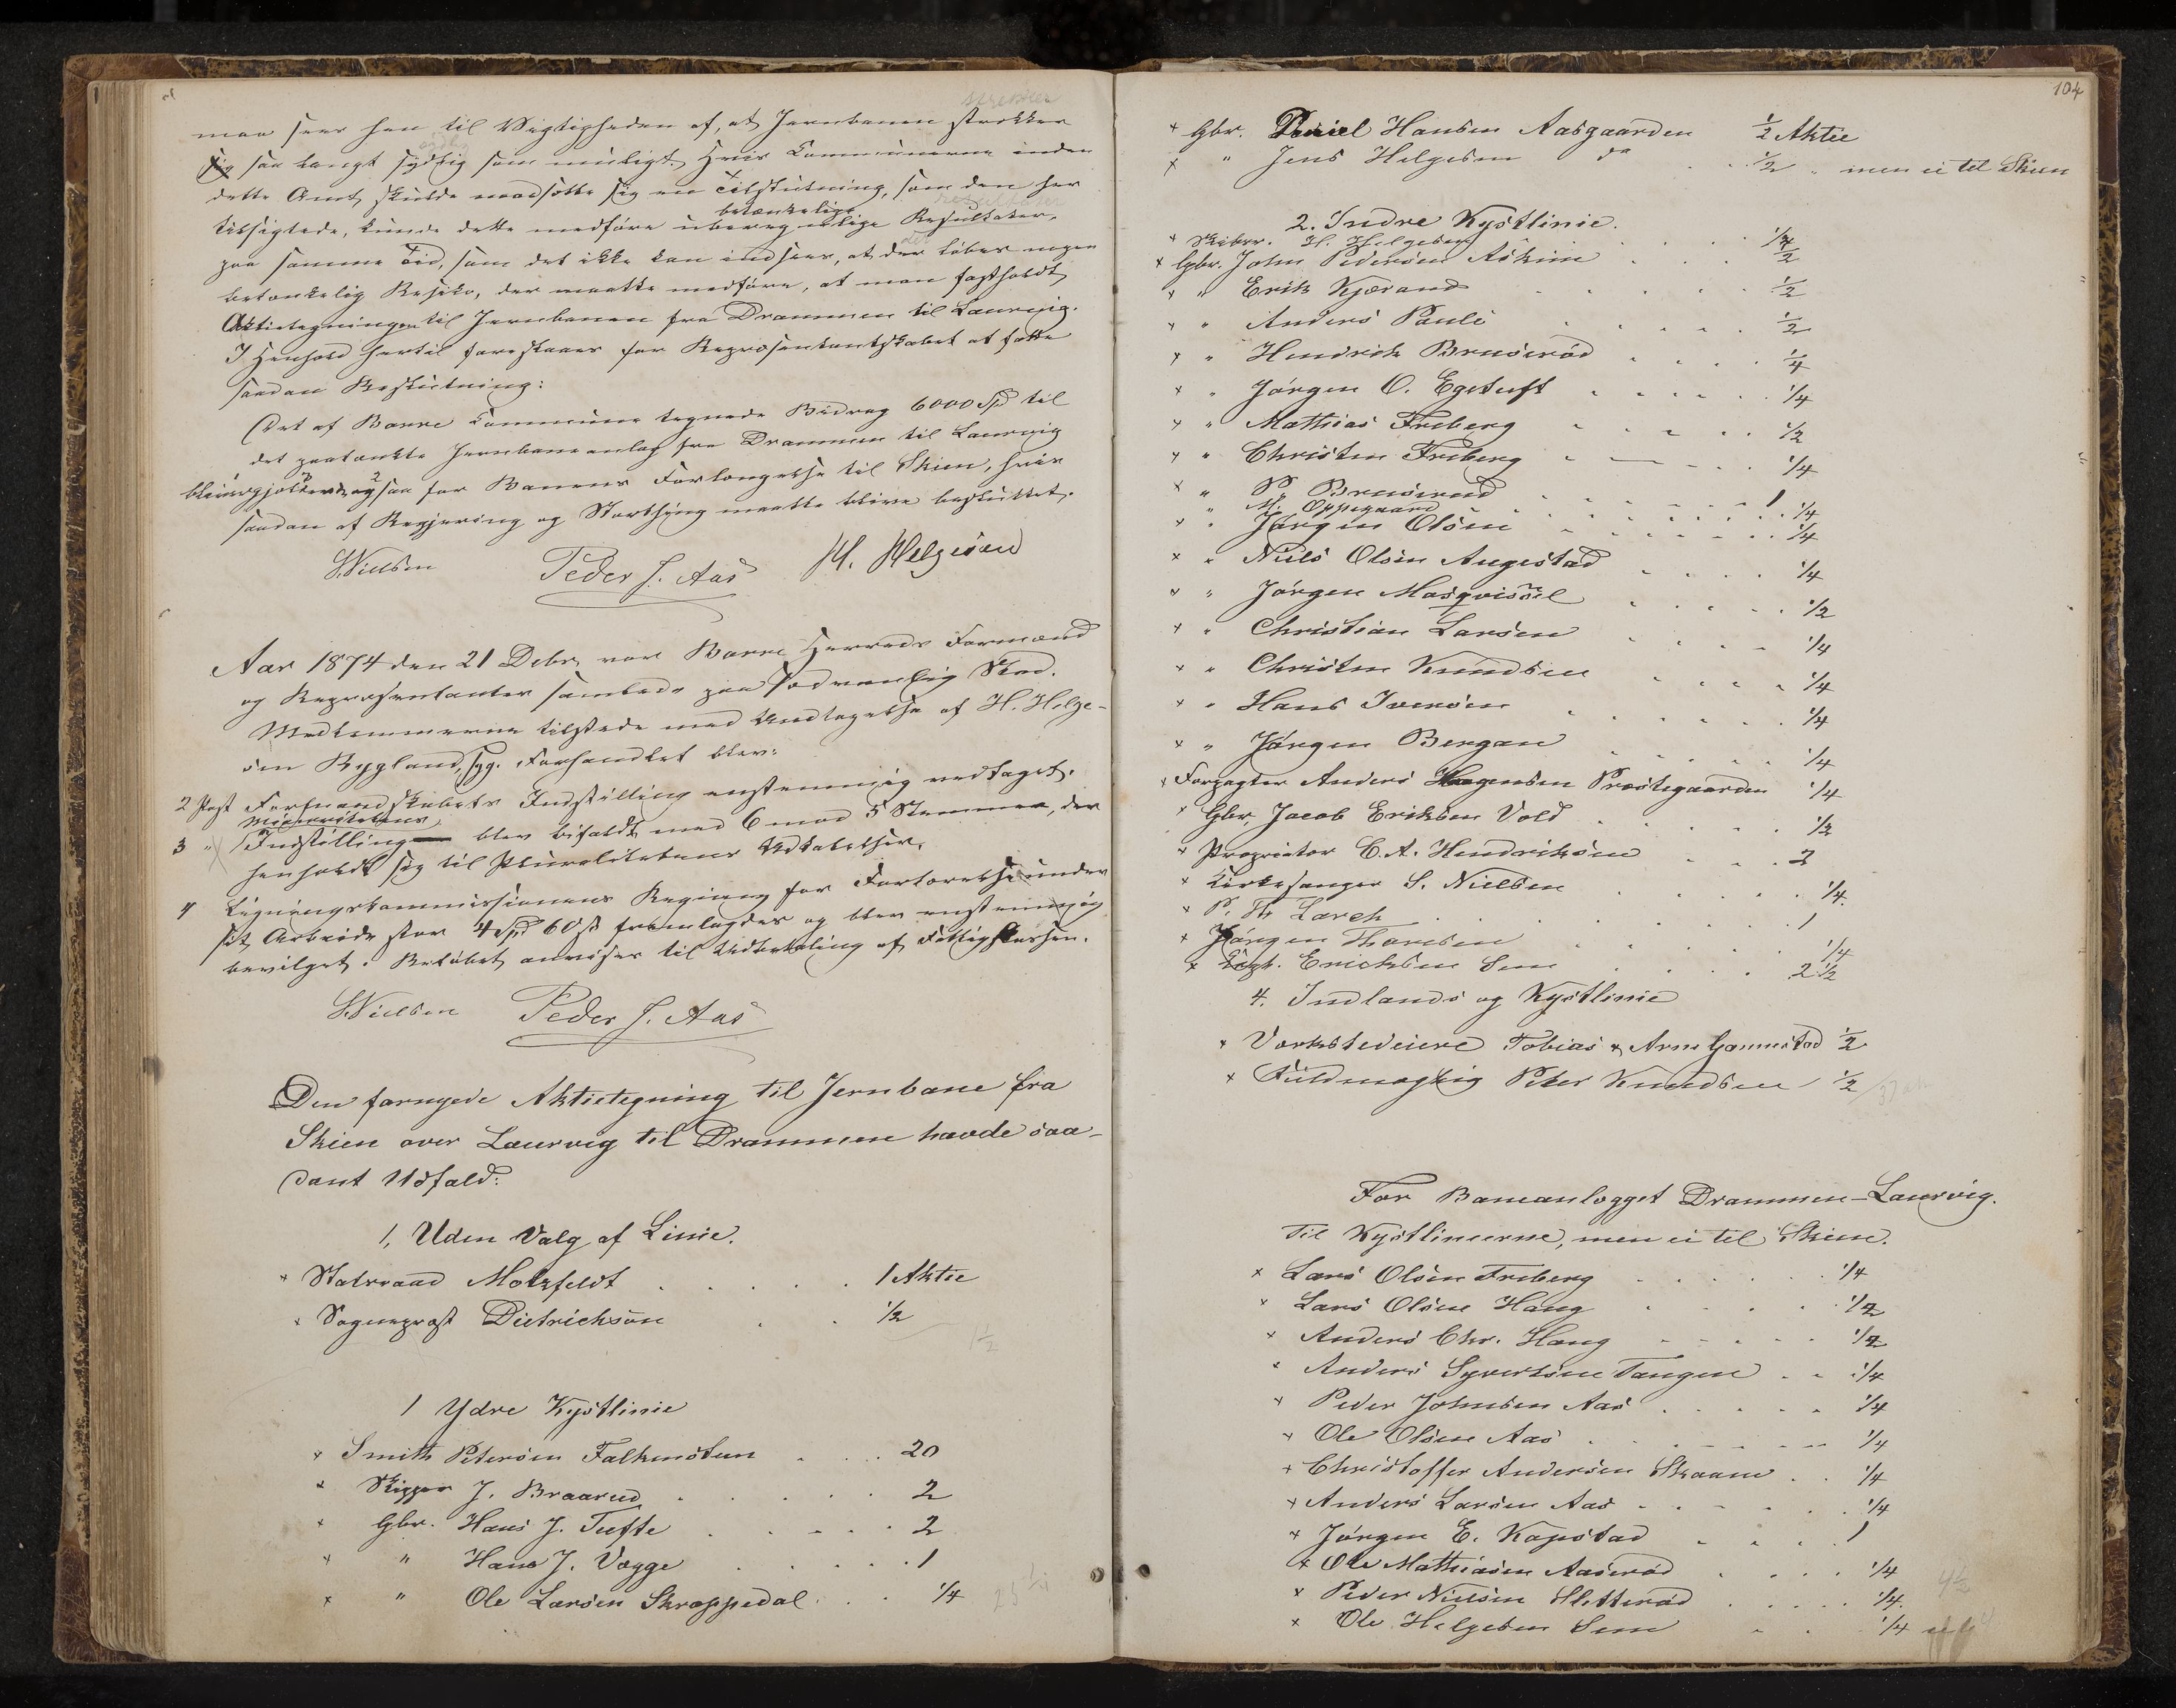 man seer hen til Vigtigheden af, at Jernbanen strækker
sig saa langt sydlig som muligt. Hvis Communerne inden
dette Amt skulde modsætte sig en Tilslutning, som den her
betænkelige
tilsigtede, kunde dette medføre uberegnelige Resultater,
paa samme Tid, som det ikke kan indsees, at der løber nogen
betænkelig Resiko, der maatte medføre, at man fastholdt
Aktietegningen til Jernbanen fra Drammen til Laurvig.
I Henhold hertil foreslaaes for Repræsentantskabet at fatte
saadan Beslutning:
Det af Borre Commune tegnede Bidrag 6000 Spd til
det paatænkte Jernbaneanlæg fra Drammen til Laurvig
bliver gjældende ogsaa for Banens Forlængelse til Skien, hvis
saadan af Regjering og Storthing maatte blive besluttet.
S. Nielsen Peder J. Aas H. Helgesen
Aar 1874 den 21 Debr var Borre Herreds Formænd
og Repræsentanter samlede paa sædvanlig Sted.
Medlemmerne tilstede med Undtagelse af H. Helge-
sen Rygland, syg. Forhandlet blev:
2 Post Formandskabets Indstilling enstemmig vedtaget.
Minoritetens
3 " Indstilling blev bifaldt med 6 mod 5 Stemmer, der
henholdt sig til Pluralitetens Udtalelser.
4 Ligningskommissionens Regning for Fortærelse under
sit Arbeide stor 4 Spd 60 s fremlagdes og blev enstemmig
bevilget. Beløbet anvises til Udbetaling af Fattigkassen.
S. Nielsen Peder J. Aas
Den fornyede Aktietegning til Jernbane fra
Skien over Laurvig til Drammen havde saa-
dant Udfald:
1, Uden Valg af Linie.
× Statsraad Motzfeldt . . . . . 1 Aktie
× Sogneprest Dietrichson . . ½
1½
1 Ydre Kystlinie
× Smith Petersen Falkensteen . . . 20
× Skipper J. Braarud . . . . . 2
× Gbr. Hans J. Tufte . . . . . 2
× " Hans J. Vegge . . . . . 1
× " Ole Larsen Skroppedal . . . ¼
25¼
104
× Gbr. Daniel Hansen Aasgaarden ½ Aktie
× " Jens Helgesen do . . ½ " men ei til Skien
2. Indre Kystlinie.
× Skibsr. H. Helgesen . . . . ¼
× Gbr. John Pedersen Askim . . . ½
× " Erik Kjærand . . . . . ½
× " Anders Pauli . . . . . ½
× " Hendrik Bruserød . . . . ¼
× " Jørgen O. Egetuft . . . . . ¼
× " Mathias Freberg . . . . . ½
× " Christen Freberg . . . . ¼
× " P. Bruserud . . . . . . 1
" M. Oppegaard . . . . . . ¼
× " Jørgen Olsen . . . . . . ¼
× " Niels Olsen Augestad . . . . ¼
× " Jørgen Masqvissel . . . . . ½
× " Christian Larsen . . . . ¼
× " Christen Knudsen . . . . ¼
× " Hans Iversen . . . . . . ¼
× " Jørgen Bergan . . . . . ¼
× Forpagter Anders Haagensen Præstegaarden ¼
× Gbr. Jacob Eriksen Vold . . . . . ½
× Proprietær C. A. Hendriksen . . . 2
× Kirkesanger S. Nielsen . . . . . ¼
× P. Th Larch . . . . . . 1
× Jørgen Thoresen . . . . . ¼
× Capt. Ericksen Sem . . . . 2½
4. Indlands og Kystlinie
× Værkstedeiere Tobias & Arne Gannestad ½
× Fuldmægtig Peter Knudsen ½
For Baneanlægget Drammen-Laurvig.
Til Kystlinierne, men ei til Skien.
× Lars Olsen Freberg . . . . . ¼
× Lars Olsen Haug . . . . . ½
× Anders Chr. Haug . . . . . ½
× Anders Syvertsen Tangen . . ¼
× Peder Johnsen Aas . . . . . ¼
× Ole Olsen Aas . . . . . . ¼
× Christoffer Andersen Skaane . . ¼
× Anders Larsen Aas . . . . . ¼
× Jørgen E. Kopstad . . . . 1
× Ole Mathiasen Aaserød . . . . ¼
× Peder Nielsen Sletterød . . . . ¼
4½
× Ole Helgesen Sem . . ¼